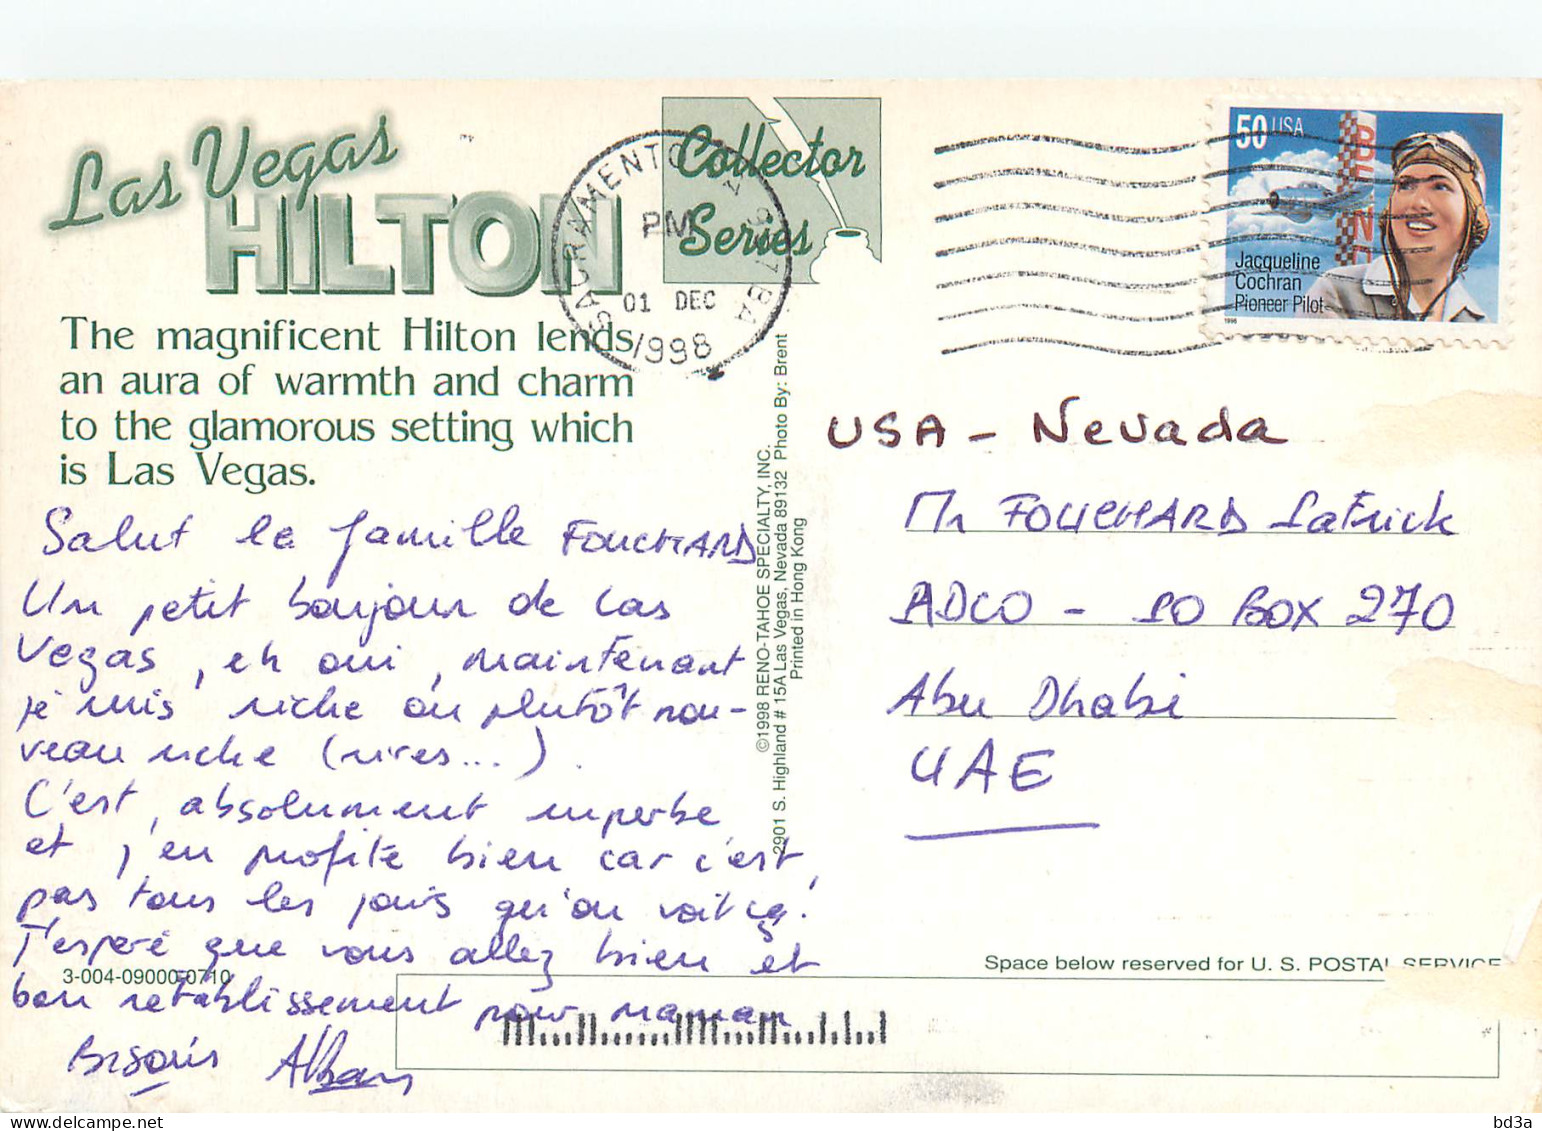 Las Vegas
HILTON
Collector
Series
The magnificent Hilton lends
an aura of warmth and charm
to the glamorous setting which
is Las Vegas.
SACRAMENTO
PM
01 DEC
1998
50 USA
BENDIX
Jacqueline
Cochran
Pioneer Pilot
1996
Salut la famille FOUCHARD
Un petit bonjour de Las
Vegas, eh oui, maintenant
je suis riche ou plutôt nou-
veau riche (rires...).
C'est, absolument superbe
et j'en profite bien car c'est,
pas tous les jours qu'on voit ça.
J'espère que vous allez bien et
bon rétablissement pour maman
Bisous Alban
3-004-09000-0710
©1998 RENO-TAHOE SPECIALTY, INC.
2901 S. Highland # 15A Las Vegas, Nevada 89132 Photo By: Brent
Printed in Hong Kong
USA - Nevada
Mr FOUCHARD Patrick
ADCO - PO BOX 270
Abu Dhabi
UAE
Space below reserved for U. S. POSTAL SERVICE
bd3a